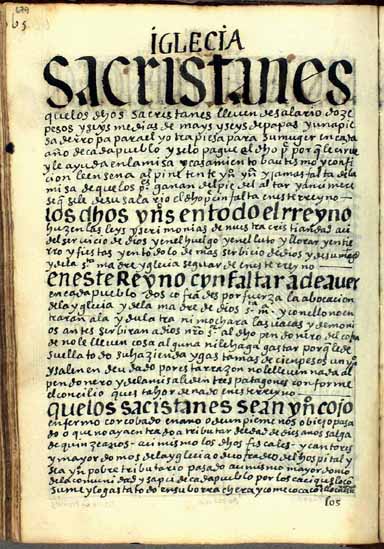 679
65
iglecia
sacristanes
que los dhos sacristanes lleuen de salario doze
pesos y seys medias de mays y seys de papas y una pie
da de rropa para el y otra piesa para su muger en cada
año de cada pueblo y se lo pague el dho p por q le cirue
y le ayuda en la misa y casamiento bautismo y confi
cion
mi sa de que los p ganan del pie del altar
se q se le de su salario el dho p cin falta en este rreyno
los dhos yns en todo el rreyno
huzen las leys y serimonias de nuestra cristiandad aci
del seruicio de dios y en el huelgo y en el luto y llorar y entie
rro y fiestas y en todo lo de mas serbicio de dios y de su mag
y de la sta madre yglecia seguar de en este rreyno
en este Reyno cyn faltar a de auer
en cada pueblo dos cofrades por fuerza la abocacion
de la yglecia y de la madre de dios s. m. y con ello no en
traran ala y dulatra ni mochara las uacas y demoni
os antes serbiran a dios nro sr al dho pendonero del cofra
de no le lleuen cosa alguna ni le haga gastar por q le de
suellato do su hazienda y gastamas de cien pesos un yn
y salen en deudado por estar razon no le lleuen nada al
pendonero y de la misa lleuen tres patagones conforme
el concilio ques tahordenado en este rreyno
que los sacistanes sean yn cojo
enfermo corcobado o mano o de un pie menos o biejo pasa
do o que no ayga entrado a tributar de edad de dies años salga
de quinze años aci mismo los dhos fiscales y cantores
y mayordomos de la yglecia o de cofrades del hospital y
sea yn pobre tributario pasado aci mismo mayordomo
de la comunidad y sapci de cada pueblo por los caciques lo co
sume y lo gasta todo en su borrachera y come coca
105